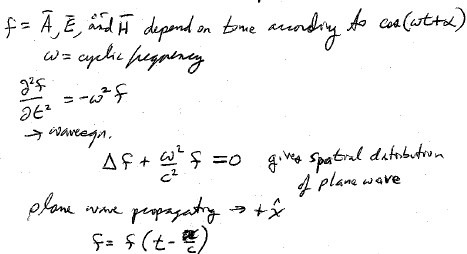 f = A̅, E̅, and H̅ depend on time according to cos(ωt+α)
ω = cyclic frequency
∂²f/∂t² = -ω² f
→ wave eqn.
Δf + ω²/c² f = 0 gives spatial distribution
of plane wave
plane wave propagating → +x̂
f = f(t - x/c)